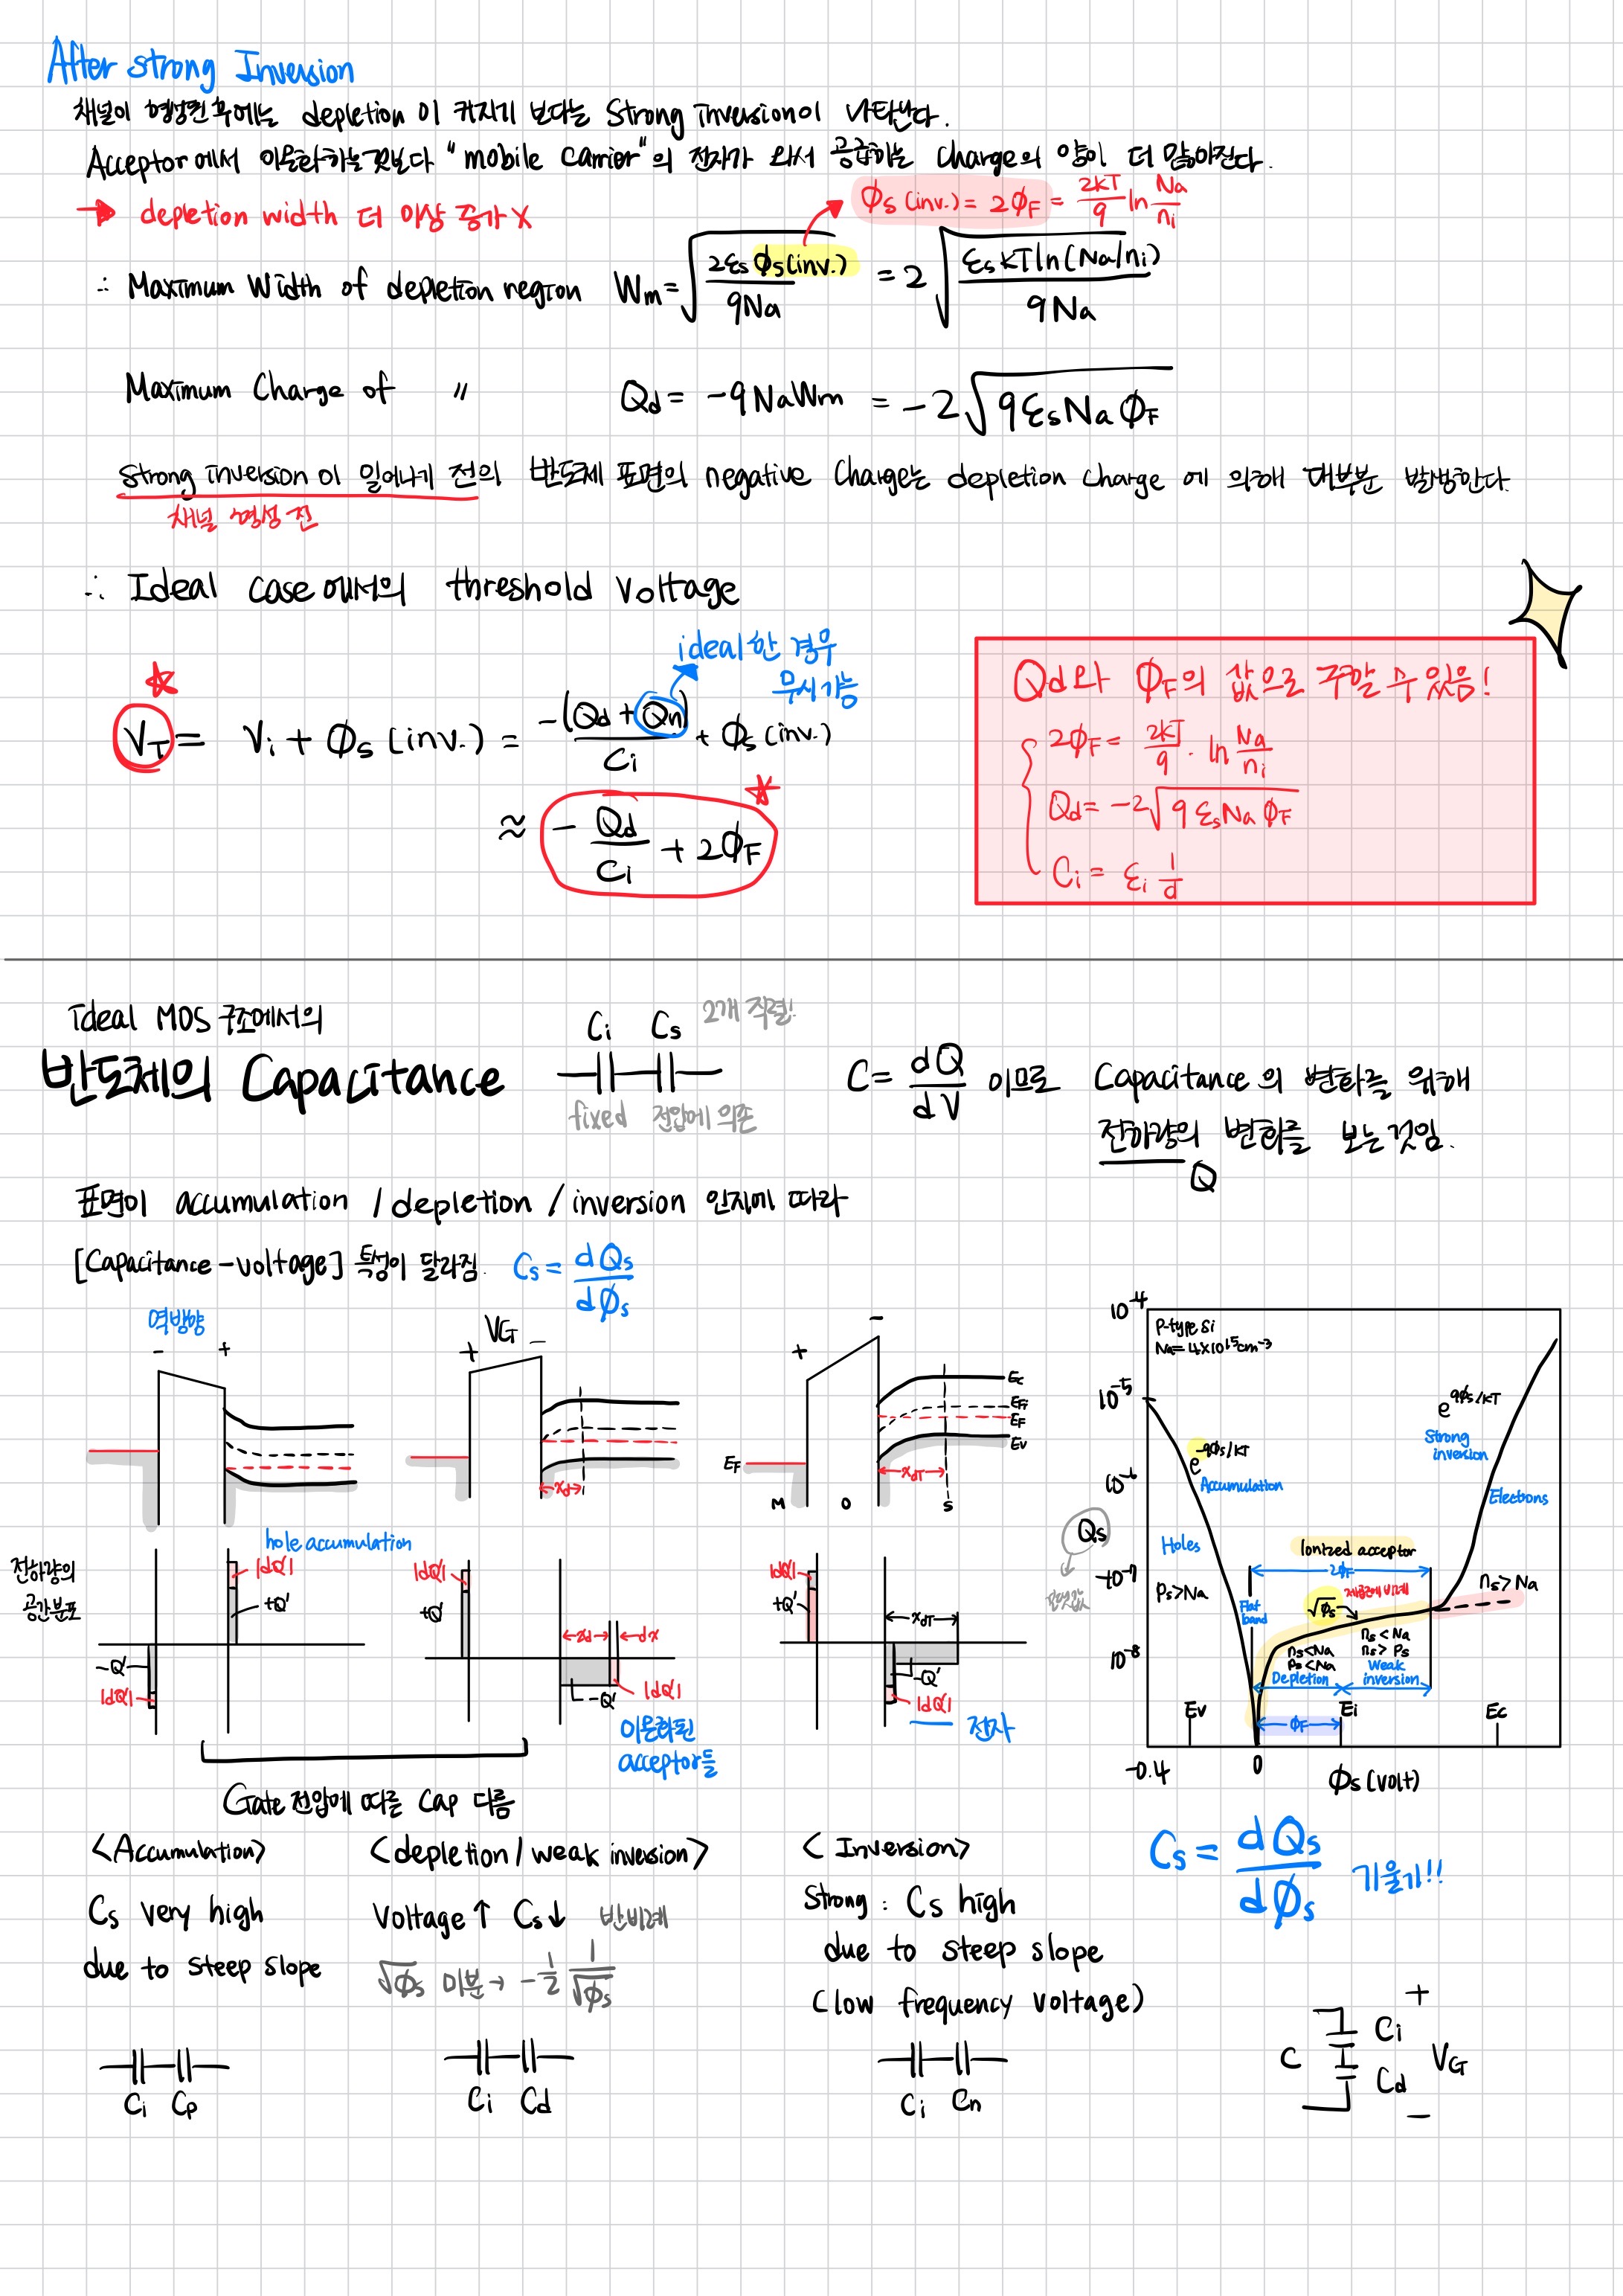 After strong Inversion
채널이 형성된 후에는 depletion이 커지기 보다는 Strong inversion이 나타난다.
Acceptor에서 이온화하는것보다 "mobile carrier"의 전자가 와서 공급하는 charge의 양이 더 많아진다.
→ depletion width 더 이상 증가 X
ϕs (inv.) = 2ϕF = 2kT/q ln Na/ni
∴ Maximum Width of depletion region Wm = √(2εs ϕs(inv.) / qNa) = 2√(εs kT ln(Na/ni) / qNa)
Maximum Charge of 〃 Qd = -qNaWm = -2√(qεsNaϕF)
Strong inversion이 일어나기 전의 반도체 표면의 negative charge는 depletion charge에 의해 대부분 발생한다.
채널 형성 전
∴ Ideal case에서의 threshold voltage
ideal한 경우
무시가능
VT = Vi + ϕs (inv.) = -(Qd + Qn)/Ci + ϕs (inv.)
≈ - Qd/Ci + 2ϕF
Qd와 ϕF의 값으로 구할 수 있음!
2ϕF = 2kT/q · ln Na/ni
Qd = -2√(q εsNa ϕF)
Ci = εi 1/d
ideal MOS 구조에서의
반도체의 Capacitance
Ci Cs 2개 직렬!
fixed 전압에 의존
C = dQ/dV 이므로 Capacitance의 변화를 위해
전하량의 변화를 보는것임.
Q
표면이 accumulation / depletion / inversion 인지에 따라
[Capacitance-voltage] 특성이 달라짐. Cs = dQs/dϕs
역방향
- +
+ VG -
+ -
Ec
EFi
EF
Ev
EF
xd
xdT
M O S
hole accumulation
전하량의
공간분포
|dQ'|
+Q'
-Q'
|dQ'|
|dQ'|
+Q'
xd dx
-Q'
|dQ'|
이온화된
acceptor들
|dQ'|
+Q'
xdT
-Q'
|dQ'|
전자
10^-4
P-type Si
Na = 4×10^15 cm^-3
10^-5
e^qϕs/kT
Strong
inversion
e^-qϕs/kT
Accumulation
10^-6
Electrons
Qs
절댓값
Holes
Ionized acceptor
2ϕF
10^-7
Ps>Na
Flat
band
√ϕs
제곱근에 비례
ns>Na
ns<Na
Ps<Na
Depletion
ns<Na
ns>Ps
Weak
inversion
10^-8
Ev
ϕF
Ei
Ec
-0.4
0
ϕs (volt)
Gate 전압에 따른 Cap 다름
<Accumulation>
Cs very high
due to steep slope
Ci Cp
<depletion / weak inversion>
Voltage↑ Cs↓ 반비례
√ϕs 미분 → -1/2 1/√ϕs
Ci Cd
<Inversion>
Strong : Cs high
due to steep slope
(low frequency voltage)
Ci Cn
Cs = dQs/dϕs 기울기!!
C
+
Ci
Cd
VG
-